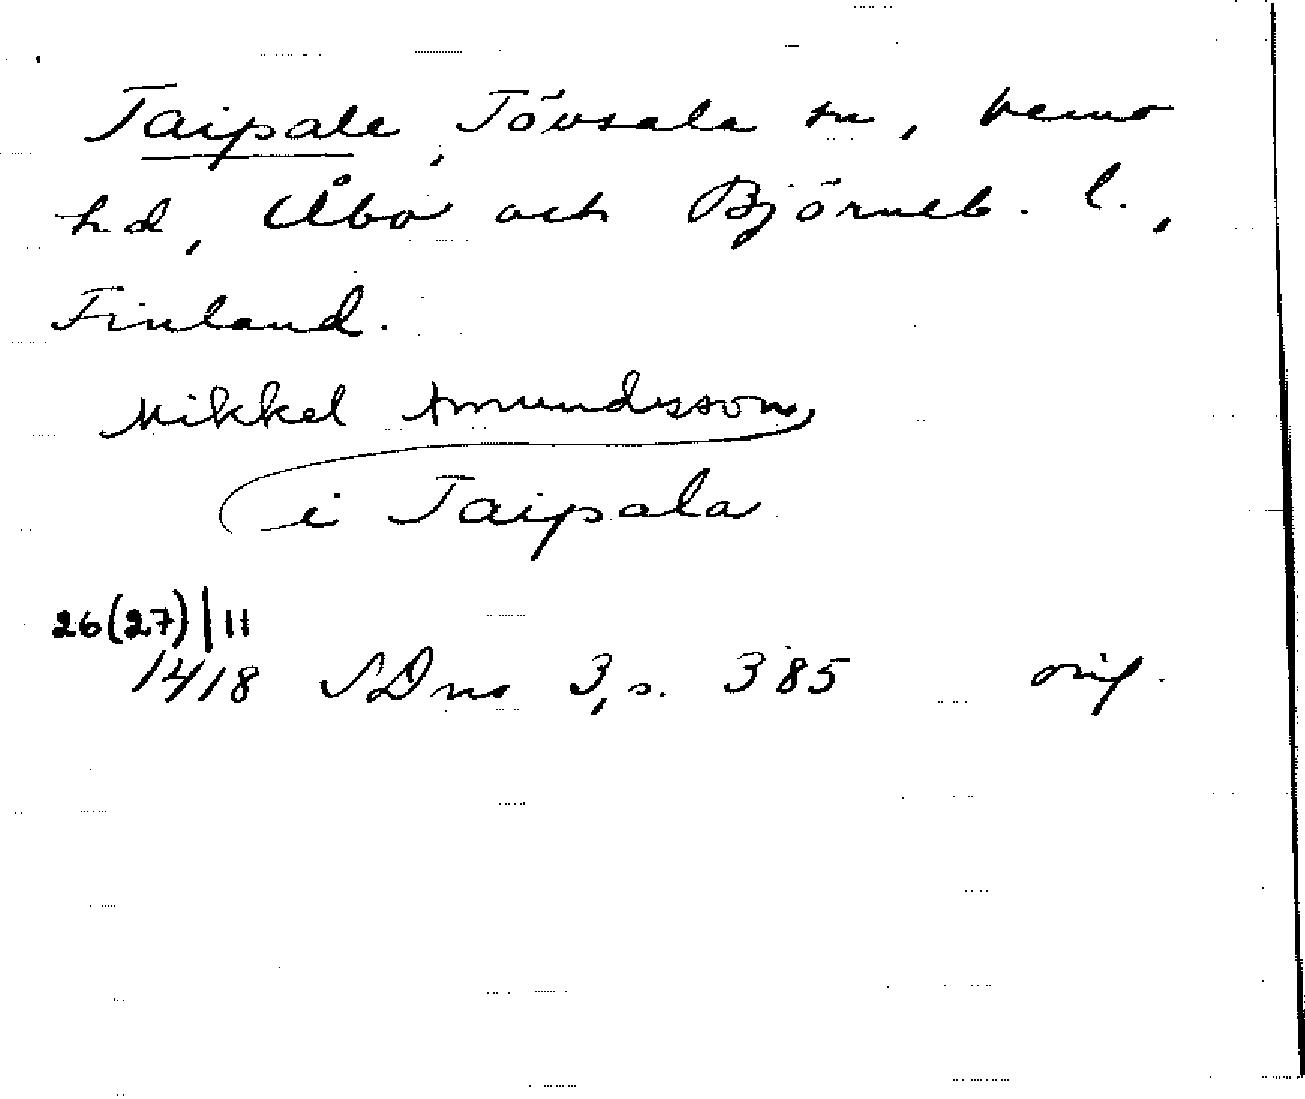 Taipale, Tövsala sn, Vemo
hd, Åbo och Björneb. l.,
Finland.
Mikkel Amundsson
i Taipala
26(27)|11
1418 SDns 3, s. 385 orig.